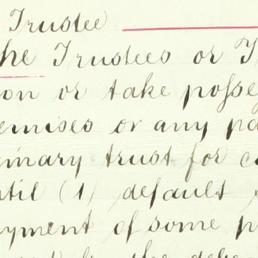 Trustee
The Trustees or T
on or take posse
emises or any pa
imary trust for c
ntil (1) default
yment of some p